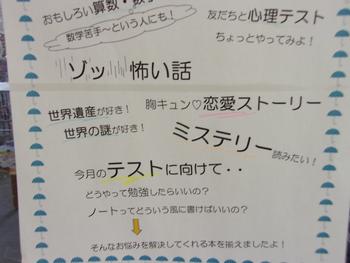 おもしろい算数・数学
数学苦手〜という人にも!
友だちと心理テスト
ちょっとやってみよ!
ゾッ 怖い話
世界遺産が好き!
世界の謎が好き!
胸キュン♡恋愛ストーリー
ミステリー読みたい!
今月のテストに向けて・・
どうやって勉強したらいいの?
ノートってどういう風に書けばいいの?
そんなお悩みを解決してくれる本を揃えましたよ!